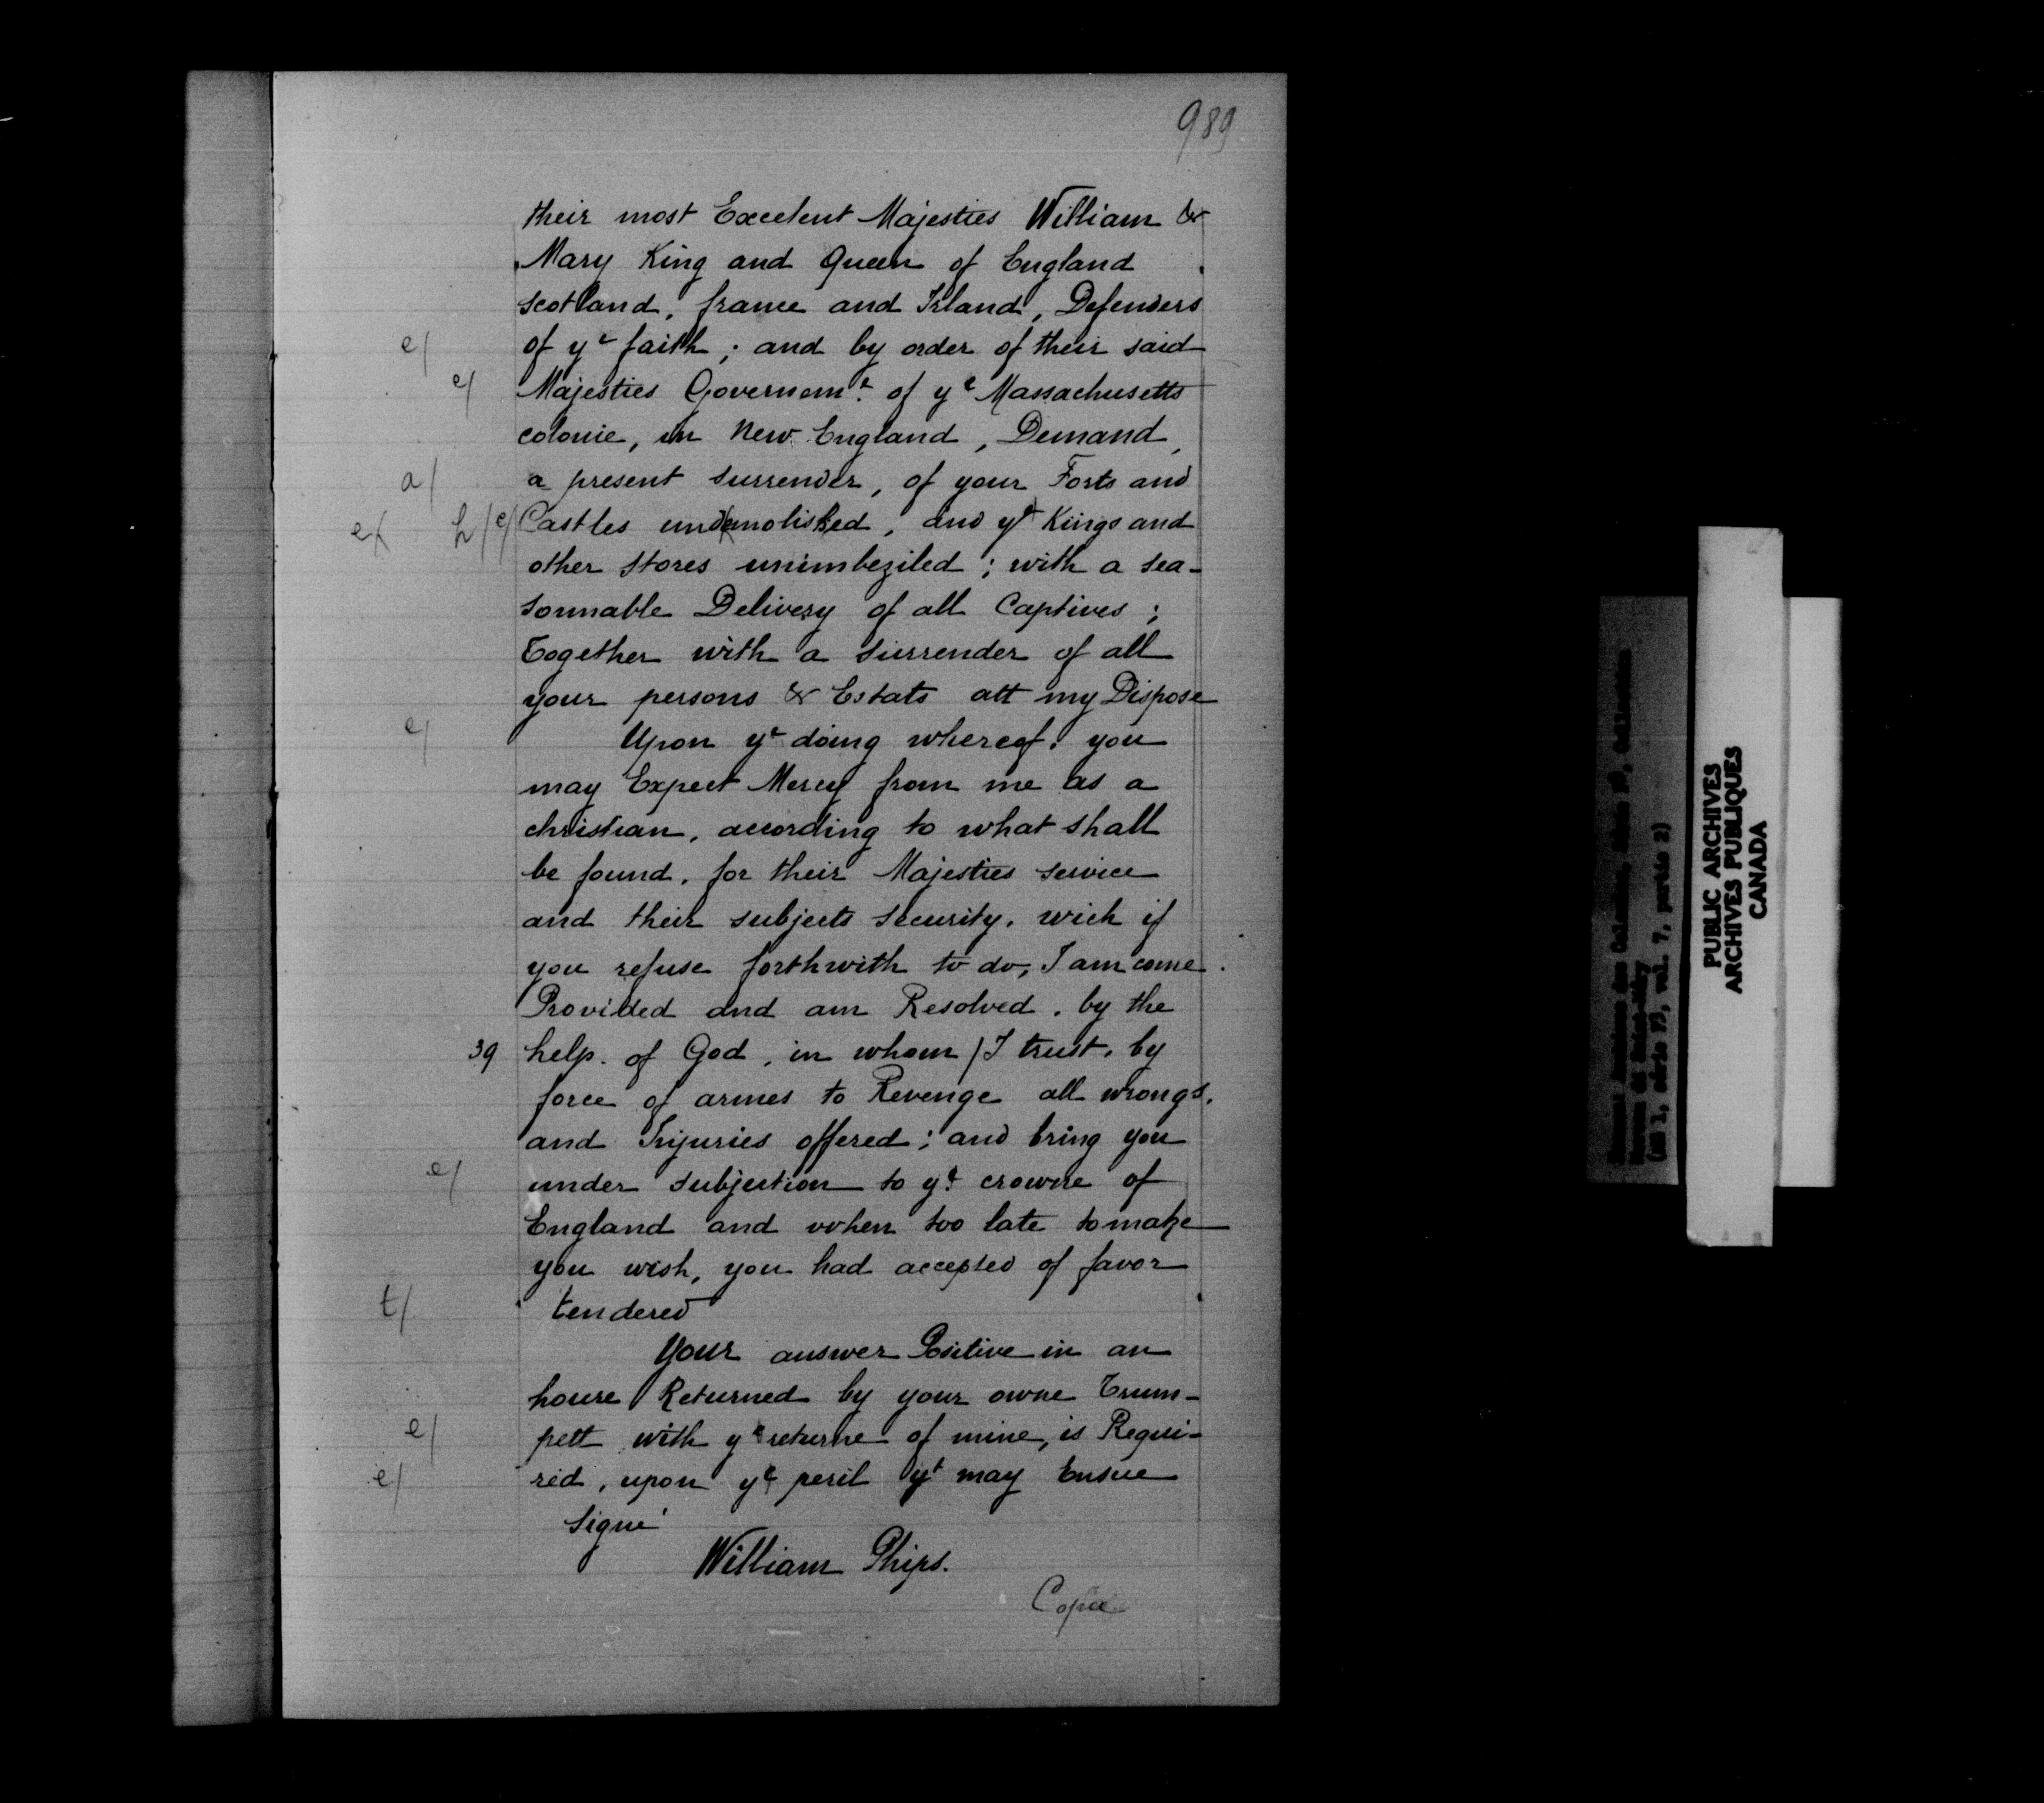 989
their most Excelent Majesties William &
Mary King and Queen of England
scotland, france and Irland, Defenders
e/ of yᵉ faith ; and by order of their said
e/ Majesties Governemᵗ. of yᵉ Massachusetts
colonie, in New England, Demand,
a/ a present surrender, of your Forts and
e/ h/ e/ Castles undemolished, and yᵉ Kings and
other stores unimbeziled ; with a sea-
sonnable Delivery of all Captives ;
Together with a surrender of all
your persons & Estats att my Dispose
e/ Upon yᵉ doing whereof. you
may Expect Mercy from me as a
christian, according to what shall
be found, for their Majesties service
and their subjects security. wich if
you refuse forthwith to do, I am come
Provided and am Resolved. by the
39 help. of God, in whom / I trust, by
force of armes to Revenge all wrongs.
and Injuries offered ; and bring you
e/ under subjection to yᵉ. crowne of
England and when too late to make
you wish, you had accepted of favor
t/ tendered
Your answer Positive in an
houre Returned by your owne Trum-
e/ pett with yᵉ returne of mine, is Requi-
e/ red, upon yᵉ peril yᵗ may Ensue
Signé
William Phips.
Copie
PUBLIC ARCHIVES
ARCHIVES PUBLIQUES
CANADA
(MG 1, série F3, vol. 7, partie 2)